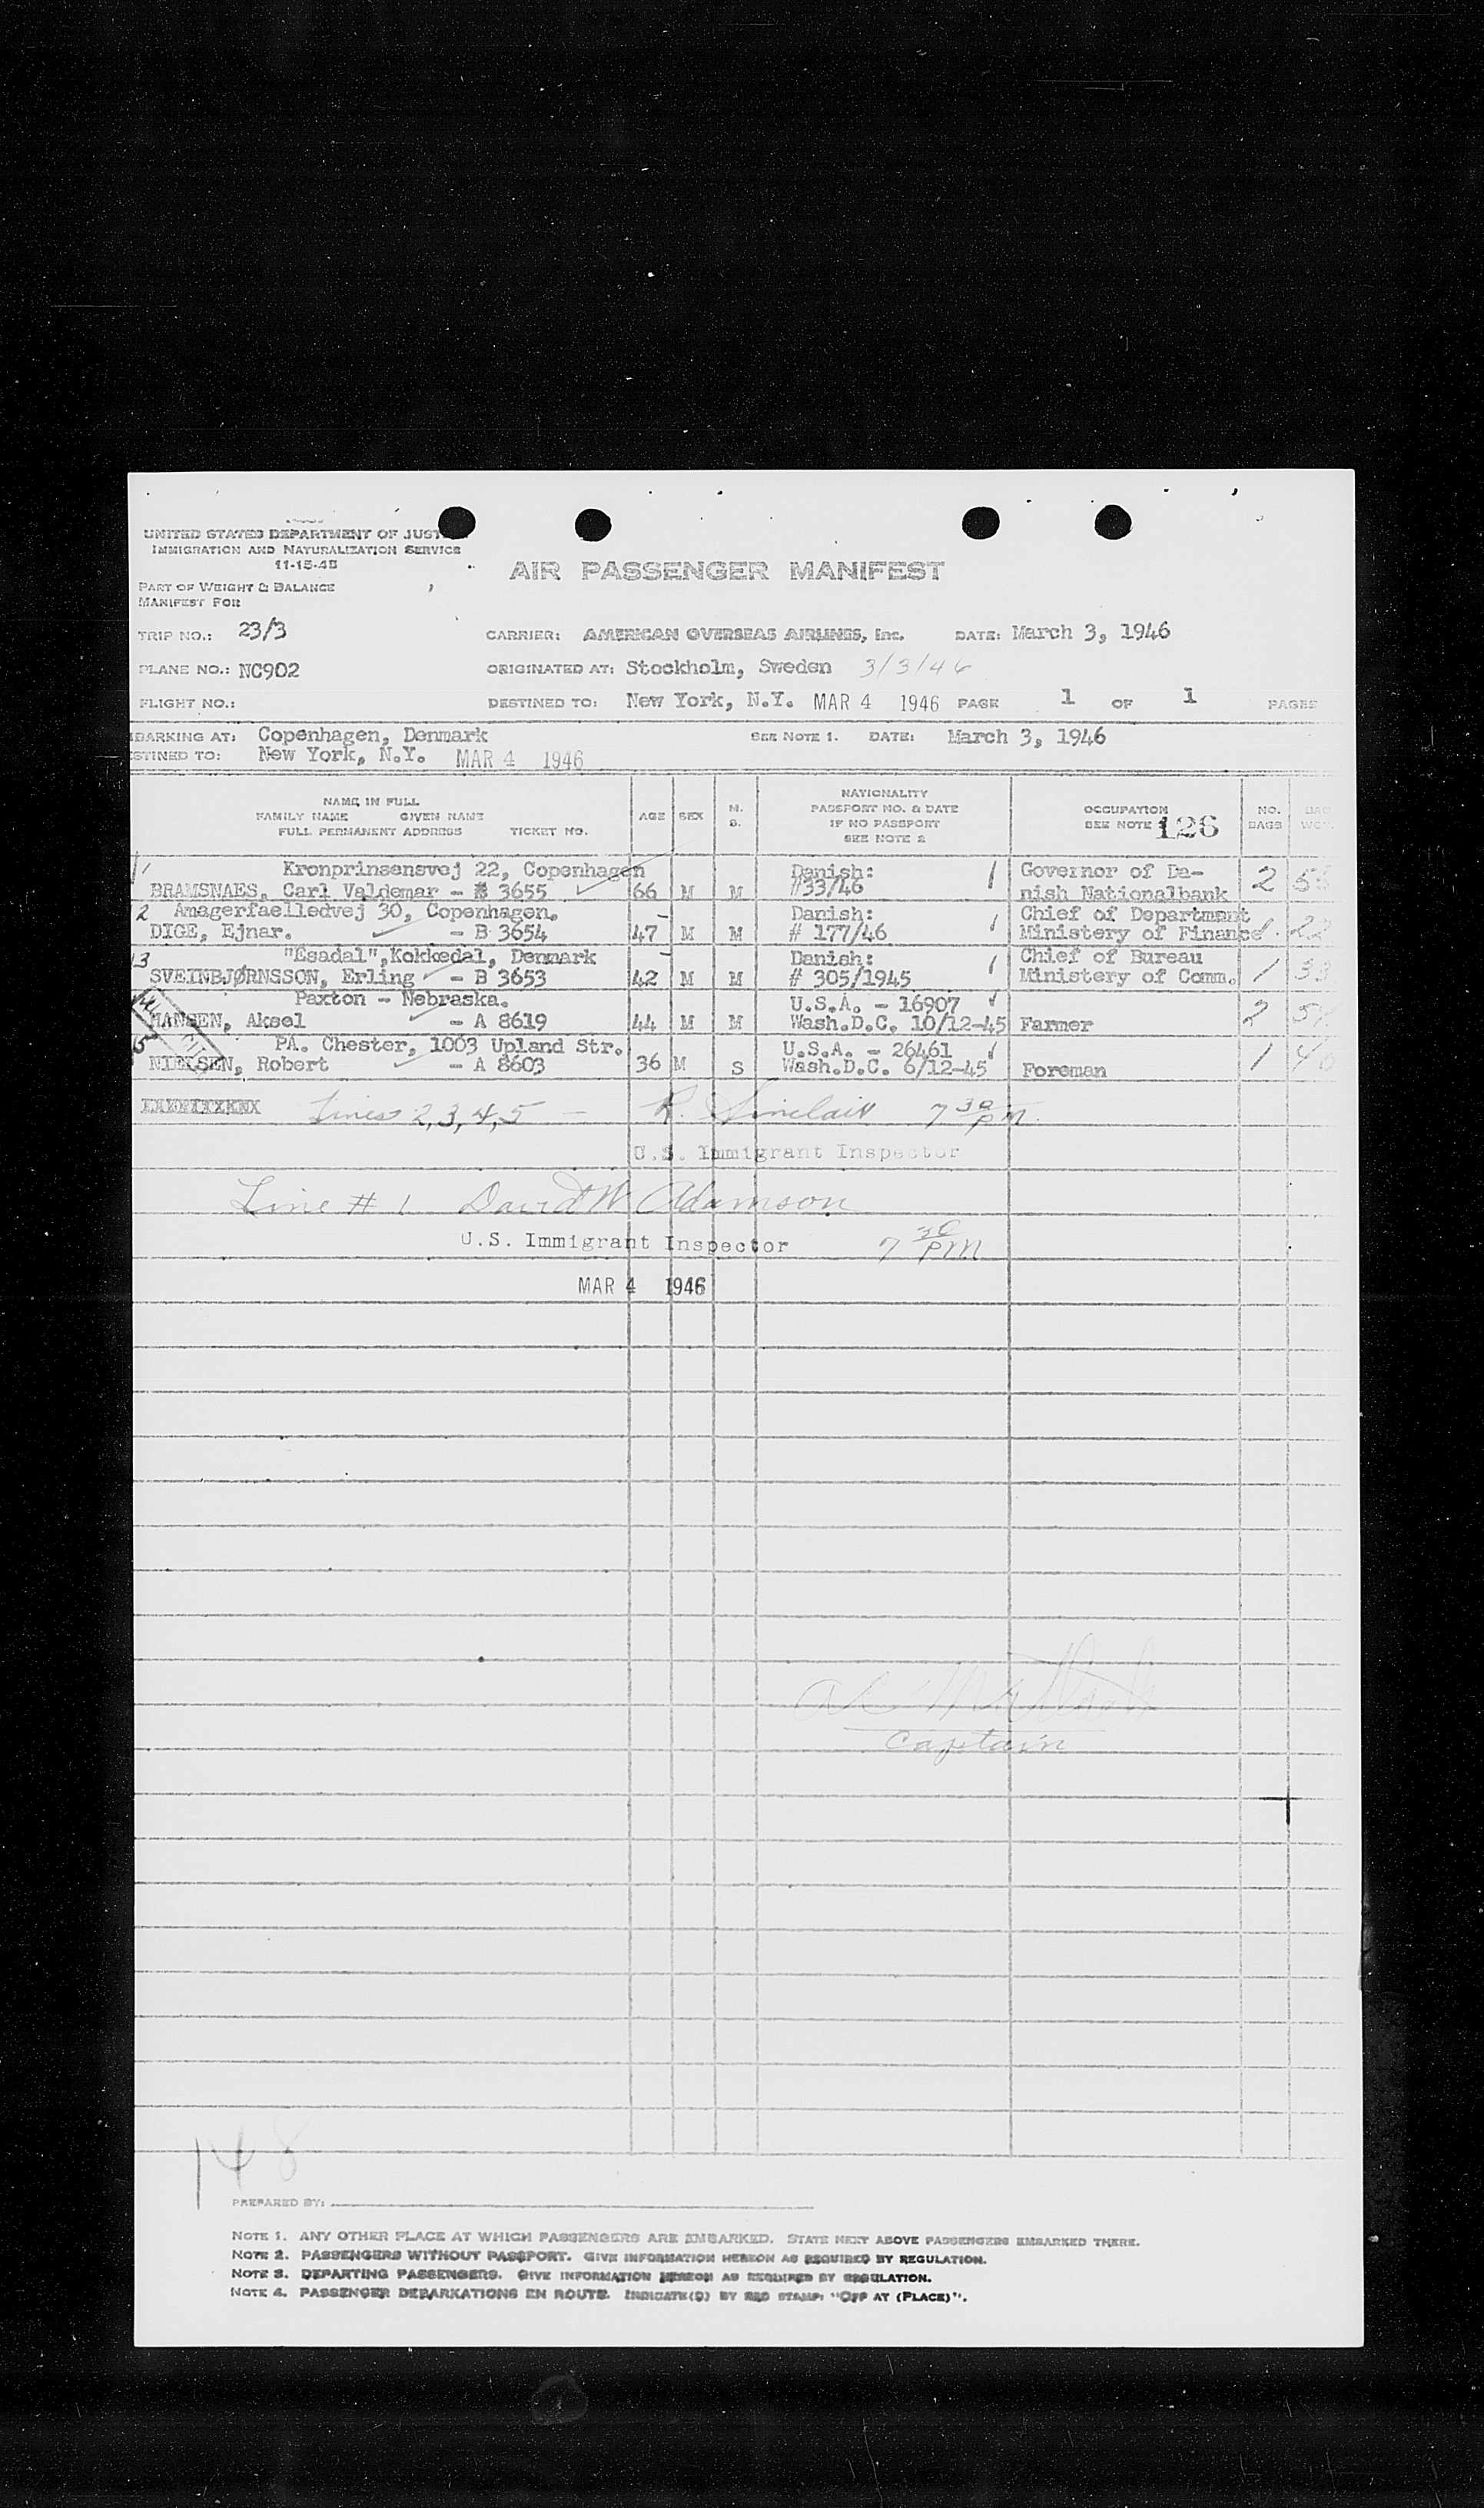 UNITED STATES DEPARTMENT OF JUST
IMMIGRATION AND NATURALIZATION SERVICE
11-15-45
AIR PASSENGER MANIFEST
PART OF WEIGHT & BALANCE
MANIFEST FOR
TRIP NO.: 23/3 CARRIER: AMERICAN OVERSEAS AIRLINES, Inc. DATE: March 3, 1946
PLANE NO.: NC902 ORIGINATED AT: Stockholm, Sweden 3/3/46
FLIGHT NO.: DESTINED TO: New York, N.Y. MAR 4 1946 PAGE 1 OF 1 PAGES
BARKING AT: Copenhagen, Denmark SEE NOTE 1. DATE: March 3, 1946
STINED TO: New York, N.Y. MAR 4 1946
NAME IN FULL
FAMILY NAME GIVEN NAME
FULL PERMANENT ADDRESS TICKET NO.
AGE SEX M. S.
NATIONALITY
PASSPORT NO. & DATE
IF NO PASSPORT
SEE NOTE 2
OCCUPATION
SEE NOTE 126
NO. BAGS
1 Kronprinsensvej 22, Copenhagen Danish: Governor of Da-
BRAMSNAES, Carl Valdemar - B 3655 66 M M #33/46 nish Nationalbank 2
2 Amagerfaelledvej 30, Copenhagen. Danish: Chief of Department
DIGE, Ejnar. - B 3654 47 M M # 177/46 Ministery of Finance 1 22
3 "Esadal",Kokkedal, Denmark Danish: Chief of Bureau
SVEINBJØRNSSON, Erling - B 3653 42 M M # 305/1945 Ministery of Comm. 1 33
4 Paxton - Nebraska. U.S.A. - 16907
HANSEN, Aksel - A 8619 44 M M Wash.D.C. 10/12-45 Farmer 2
5 PA. Chester, 1003 Upland Str. U.S.A. - 26461
NIELSEN, Robert - A 8603 36 M S Wash.D.C. 6/12-45 Foreman 1
Lines 2,3,4,5 - R. Sinclair 7 30 PM
U.S. Immigrant Inspector
Line # 1 David W Adamson
U.S. Immigrant Inspector 7 30 PM
MAR 4 1946
Captain
148
PREPARED BY:
NOTE 1. ANY OTHER PLACE AT WHICH PASSENGERS ARE EMBARKED. STATE NEXT ABOVE PASSENGERS EMBARKED THERE.
NOTE 2. PASSENGERS WITHOUT PASSPORT. GIVE INFORMATION HEREON AS REQUIRED BY REGULATION.
NOTE 3. DEPARTING PASSENGERS. GIVE INFORMATION HEREON AS REQUIRED BY REGULATION.
NOTE 4. PASSENGER DEBARKATIONS EN ROUTE. INDICATE(D) BY RED STAMP: "OFF AT (PLACE)".